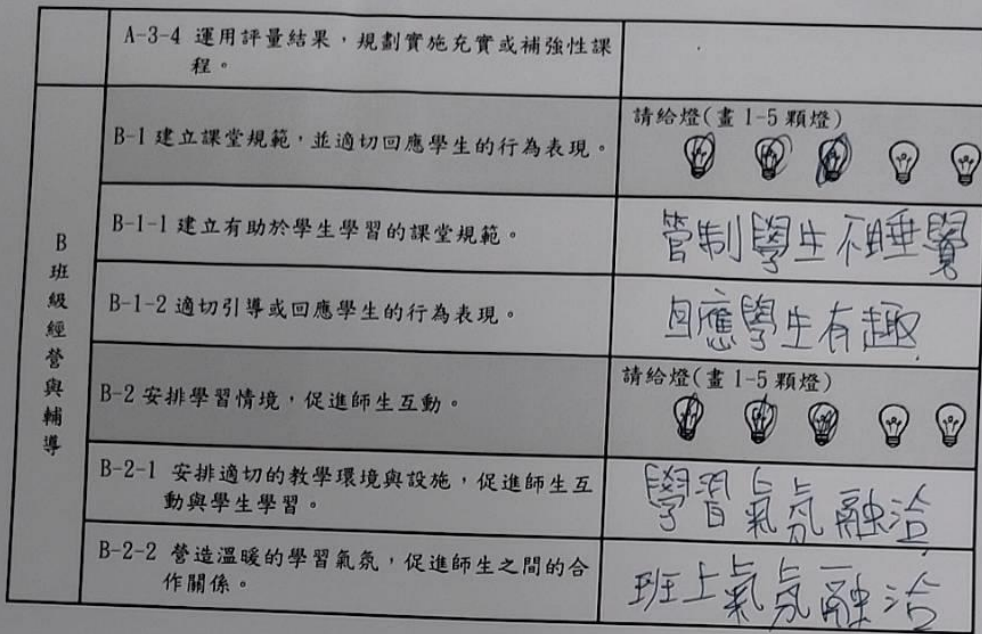 A-3-4 運用評量結果，規劃實施充實或補強性課
程。
B-1 建立課堂規範，並適切回應學生的行為表現。
請給燈(畫 1-5 顆燈)
B-1-1 建立有助於學生學習的課堂規範。
管制學生不睡覺
B-1-2 適切引導或回應學生的行為表現。
回應學生有趣
B
班
級
經
營
與
輔
導
B-2 安排學習情境，促進師生互動。
請給燈(畫 1-5 顆燈)
B-2-1 安排適切的教學環境與設施，促進師生互
動與學生學習。
學習氣氛融洽
B-2-2 營造溫暖的學習氣氛，促進師生之間的合
作關係。
班上氣氛融洽